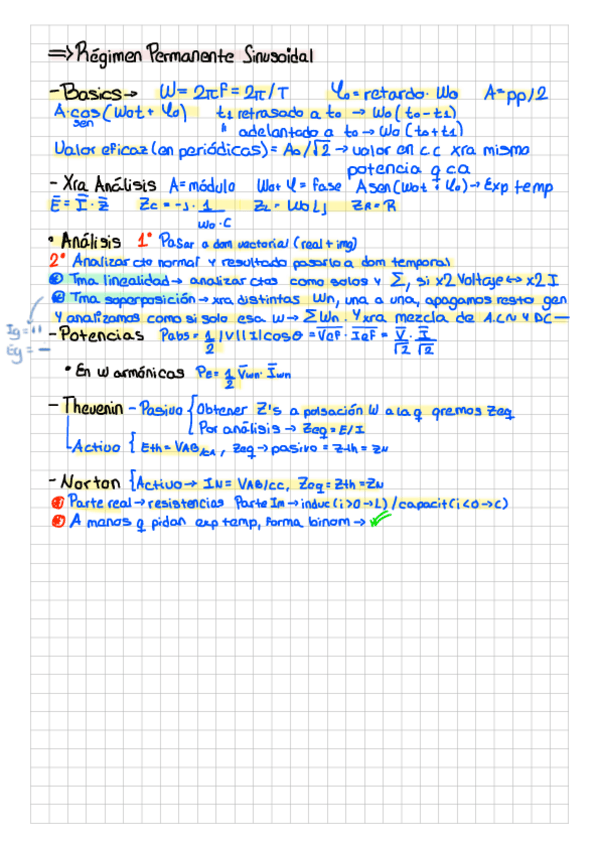 => Régimen Permanente Sinusoidal
- Basics → W = 2πf = 2π/T φ₀ = retardo · W₀ A = pp/2
A·cos(W₀t + φ₀) t₁ retrasado a t₀ → W₀(t₀-t₁)
sen " adelantado a t₀ → W₀(t₀+t₁)
Valor eficaz (en periódicas) = A₀/√2 → valor en c.c xra misma
potencia q c.a
- Xra Análisis A = módulo W₀t + φ = fase A sen(W₀t + φ₀) → Exp temp
Ē = Ī · Z̄ Zc = -j · 1/W₀·C ZL = W₀Lj ZR = R
• Análisis 1º Pasar a dom vectorial (real + img)
2º Analizar cto normal y resultado pasarlo a dom temporal
① Tma linealidad → analizar ctos como solos y Σ, si x2 Voltaje ↔ x2 I
② Tma soperposición → xra distintas Wn, una a una, apagamos resto gen
y analizamos como si solo esa W → ΣWn. Y xra mezcla de A.C ~ y DC —
Ig = "
Eg = —
- Potencias Pabs = 1/2 |V||I|cosθ = Vef · Ief = V̄/√2 · Ī/√2
• En W armónicas Pe = 1/2 V̄wn · Īwn
- Thevenin - Pasivo { Obtener Z's a polsación W a la q qremos Zeq
Por análisis → Zeq = E/I
Activo { Eth = VAB/CA, Zeq → pasivo = Zth = ZN
- Norton { Activo → IN = VAB/cc, Zeq = Zth = ZN
① Parte real → resistencias Parte Im → induc (i>0→L) / capacit (i<0→C)
② A manos q pidan exp temp, forma binom → ✓